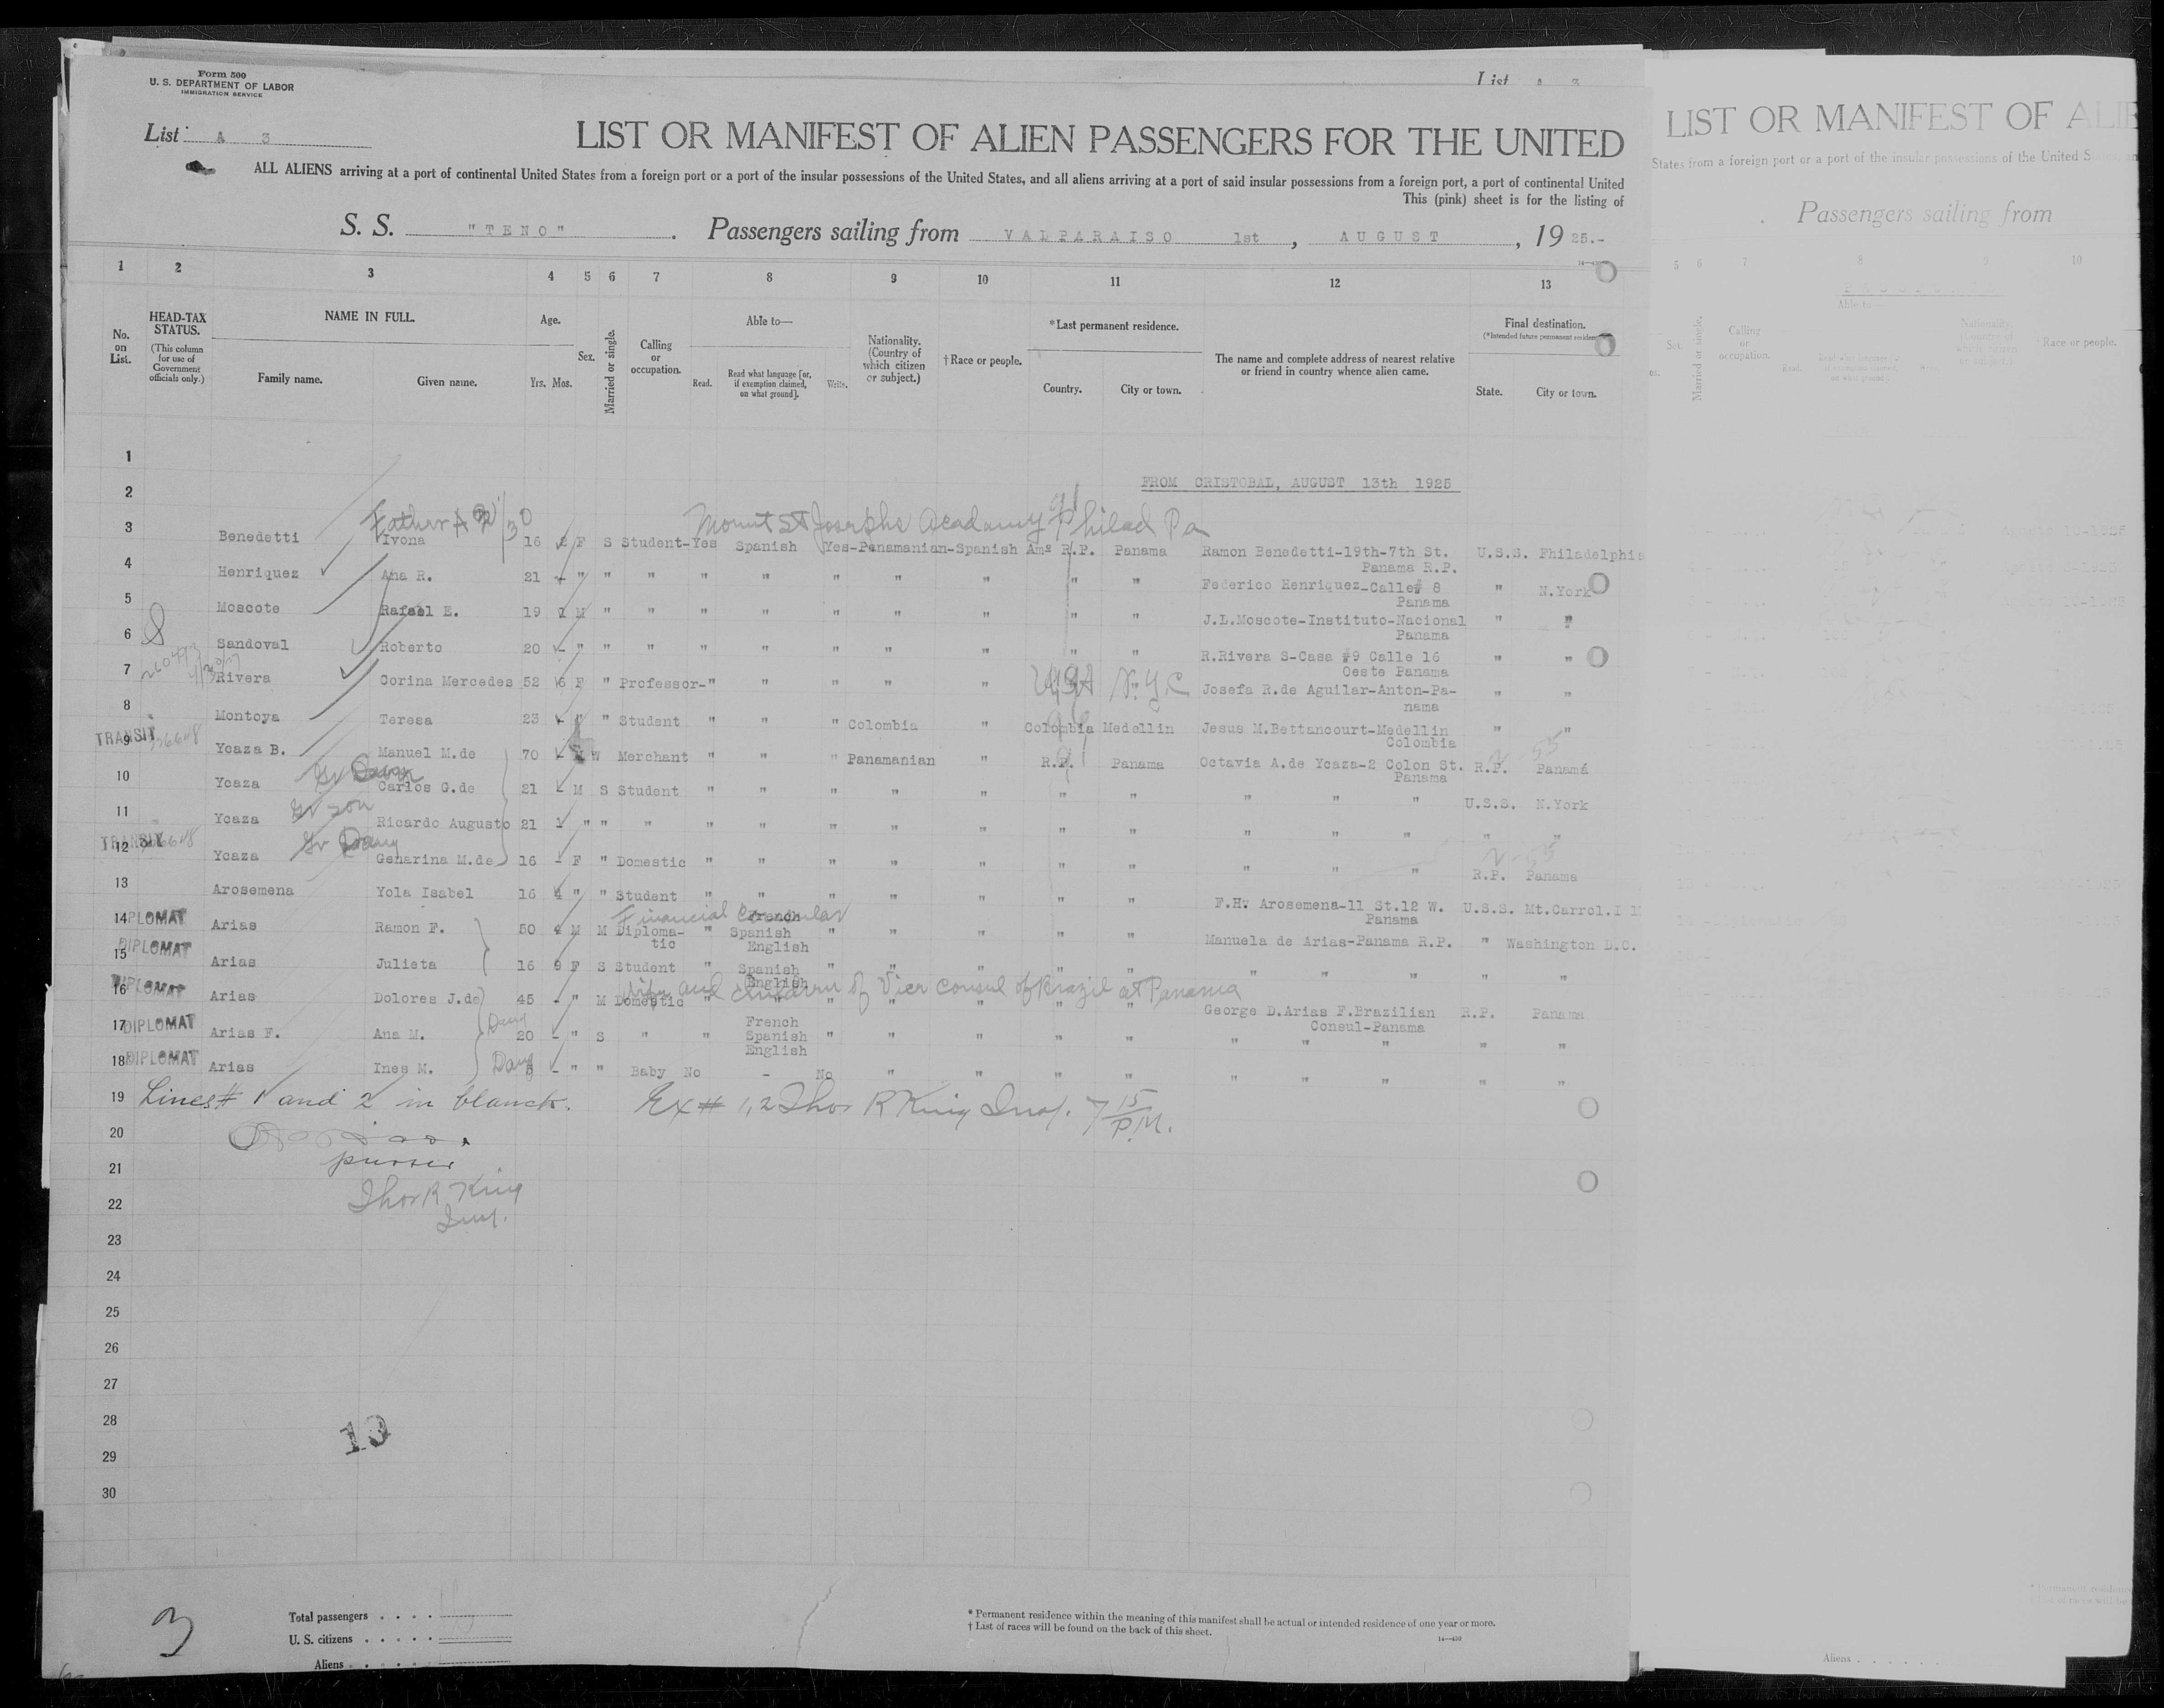 Form 500
U. S. DEPARTMENT OF LABOR
IMMIGRATION SERVICE
List A 3
LIST OR MANIFEST OF ALIEN PASSENGERS FOR THE UNITED
ALL ALIENS arriving at a port of continental United States from a foreign port or a port of the insular possessions of the United States, and all aliens arriving at a port of said insular possessions from a foreign port, a port of continental United
This (pink) sheet is for the listing of
S. S. "TENO" . Passengers sailing from VALPARAISO 1st , AUGUST , 19 25.-
1 2 3 4 5 6 7 8 9 10 11 12 13
No. on List.
HEAD-TAX STATUS. (This column for use of Government officials only.)
NAME IN FULL.
Family name. Given name.
Age.
Yrs. Mos.
Sex.
Married or single.
Calling or occupation.
Able to—
Read. Read what language [or, if exemption claimed, on what ground]. Write.
Nationality. (Country of which citizen or subject.)
†Race or people.
*Last permanent residence.
Country. City or town.
The name and complete address of nearest relative or friend in country whence alien came.
Final destination.
(*Intended future permanent residence)
State. City or town.
1
2 FROM CRISTOBAL, AUGUST 13th 1925
Father Mount St Josephs Academy Philad Pa
3 Benedetti Ivona 16 2 F S Student-Yes Spanish Yes-Panamanian-Spanish Amº R.P. Panama Ramon Benedetti-19th-7th St. U.S.S. Philadelphia
Panama R.P.
4 Henriquez Ana R. 21 - " " " " " " " " " " Federico Henriquez-Calle# 8 " N.York
Panama
5 Moscote Rafael E. 19 1 M " " " " " " " " " J.L.Moscote-Instituto-Nacional " "
Panama
6 Sandoval Roberto 20 - " " " " " " " " " " R.Rivera S-Casa #9 Calle 16 " "
Oeste Panama
7 Rivera Corina Mercedes 52 6 F " Professor-" " " " " USA N.Y.C Josefa R.de Aguilar-Anton-Pa- " "
nama
8 Montoya Teresa 23 - " " Student " " " Colombia " Colombia Medellin Jesus M.Bettancourt-Medellin " "
Colombia
TRANSIT
9 Ycaza B. Manuel M.de 70 - M W Merchant " " " Panamanian " R.P. Panama Octavia A.de Ycaza-2 Colon St. R.P. Panamá
Panama
10 Ycaza Carlos G.de 21 - M S Student " " " " " " " " " " U.S.S. N.York
Gr son
11 Ycaza Ricardo Augusto 21 1 " " " " " " " " " " " " " " "
TRANSIT
Gr Daug
12 Ycaza Genarina M.de 16 - F " Domestic " " " " " " " " " " R.P. Panama
13 Arosemena Yola Isabel 16 4 " " Student " " " " " " " F.H. Arosemena-11 St.12 W. U.S.S. Mt.Carrol.I
Panama
Financial Consular
14 DIPLOMAT Arias Ramon F. 50 4 M M Diploma-tic " French Spanish English " " " " " Manuela de Arias-Panama R.P. " Washington D.C.
15 DIPLOMAT Arias Julieta 16 9 F S Student " Spanish English " " " " " " " " " "
wife and children of Vice Consul of Brazil at Panama
16 DIPLOMAT Arias Dolores J.de 45 - " M Domestic " " " " " " " George D.Arias F.Brazilian R.P. Panama
Consul-Panama
17 DIPLOMAT Arias F. Ana M. Daug 20 - " S " " French Spanish English " " " " " " " " " "
18 DIPLOMAT Arias Ines M. Daug - " " Baby No - No " " " " " " " " "
19 Lines # 1 and 2 in blanck. Ex # 1, 2 Thor R King Insp. 7 15 P.M.
20
purser
21
Thor R King
22 Insp.
23
24
25
26
27
28
29
30
13
3
Total passengers . . . .
U. S. citizens . . . . .
Aliens . . . . . .
* Permanent residence within the meaning of this manifest shall be actual or intended residence of one year or more.
† List of races will be found on the back of this sheet.
14—430
LIST OR MANIFEST OF ALIE
States from a foreign port or a port of the insular possessions of the United States, an
Passengers sailing from
5 6 7 8 9 10
Married or single.
Calling or occupation.
Able to—
Race or people.
Aliens . . . . . .